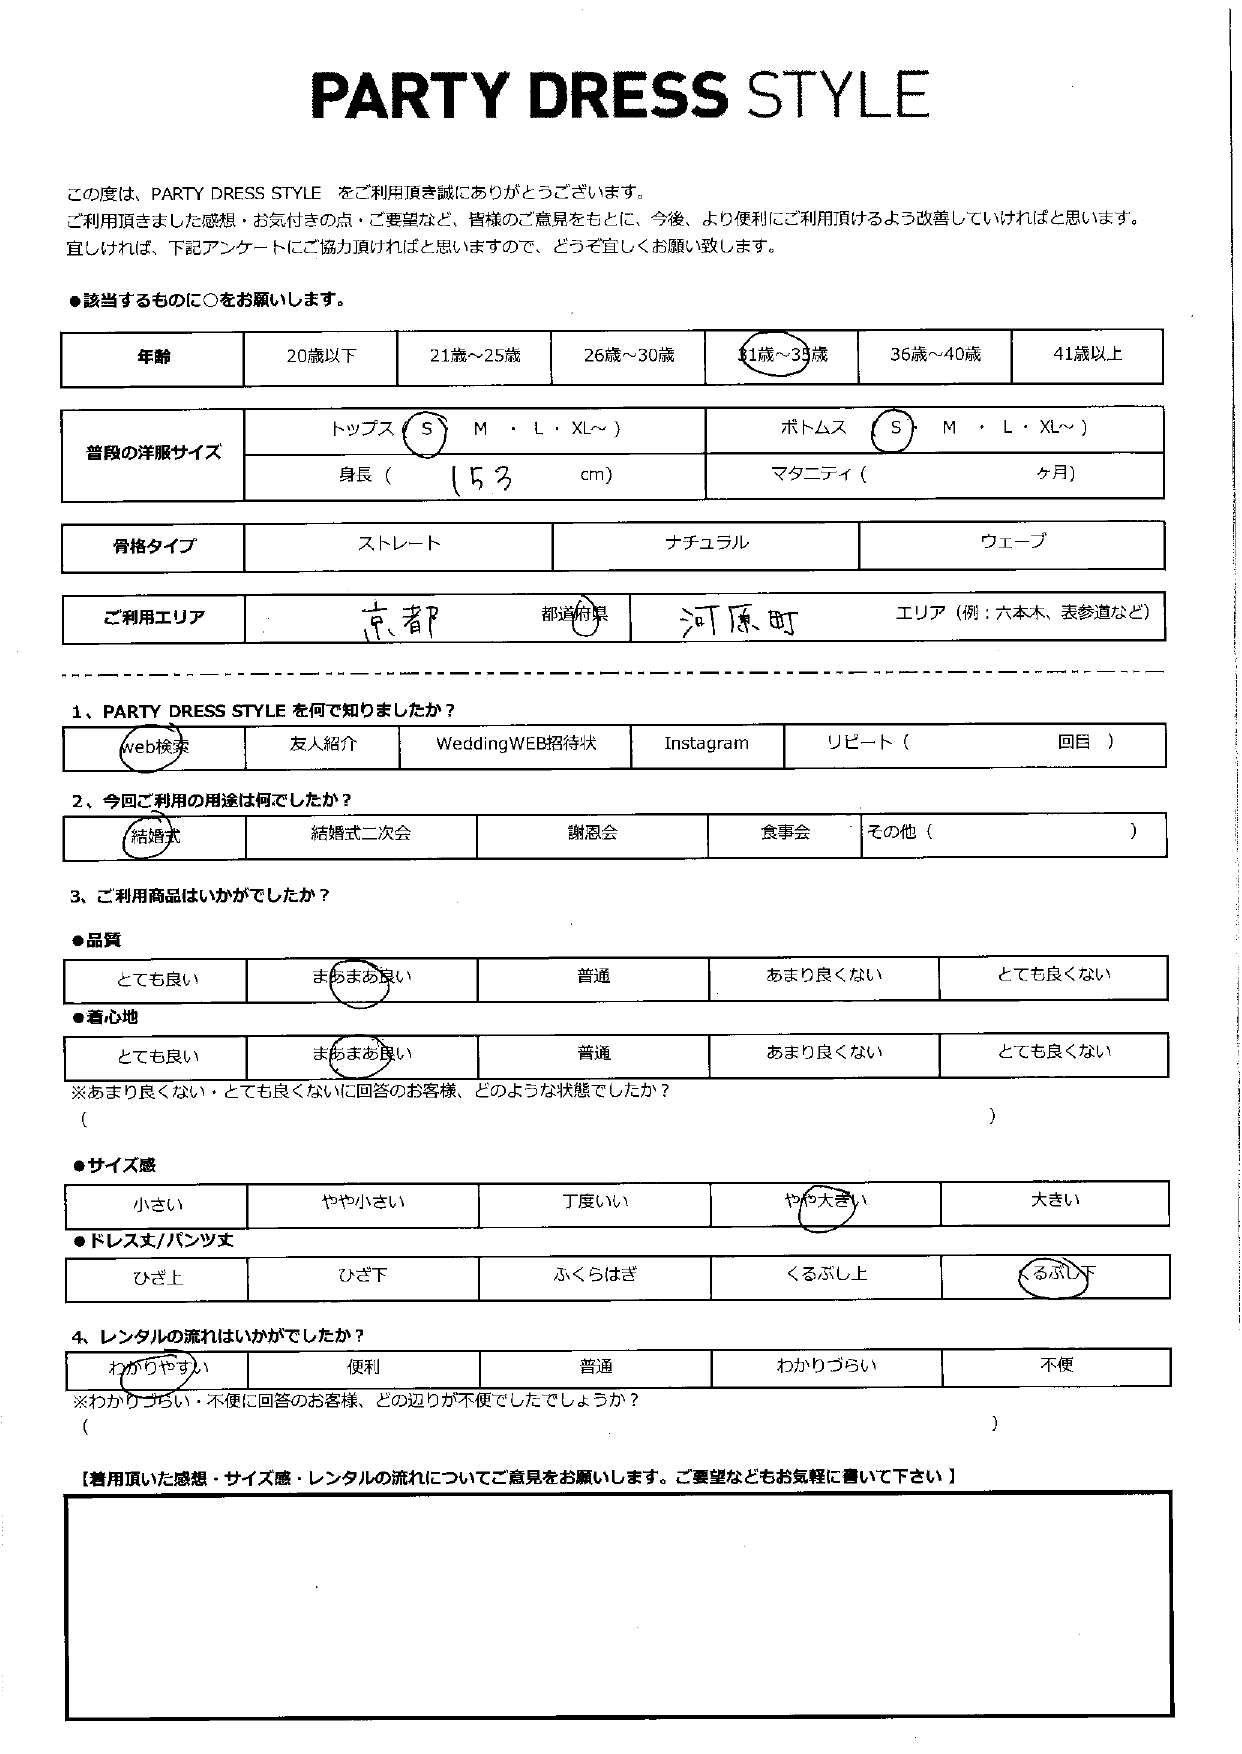 PARTY DRESS STYLE
この度は、PARTY DRESS STYLE をご利用頂き誠にありがとうございます。
ご利用頂きました感想・お気付きの点・ご要望など、皆様のご意見をもとに、今後、より便利にご利用頂けるよう改善していければと思います。
宜しければ、下記アンケートにご協力頂ければと思いますので、どうぞ宜しくお願い致します。
●該当するものに○をお願いします。
年齢 20歳以下 21歳～25歳 26歳～30歳 31歳～35歳 36歳～40歳 41歳以上
普段の洋服サイズ
トップス ( S M ・ L ・ XL～ ) ボトムス ( S ・ M ・ L ・ XL～ )
身長 ( 153 cm) マタニティ ( ヶ月)
骨格タイプ ストレート ナチュラル ウェーブ
ご利用エリア 京都 都道府県 河原町 エリア（例：六本木、表参道など）
1、PARTY DRESS STYLE を何で知りましたか？
web検索 友人紹介 WeddingWEB招待状 Instagram リピート ( 回目 )
2、今回ご利用の用途は何でしたか？
結婚式 結婚式二次会 謝恩会 食事会 その他 ( )
3、ご利用商品はいかがでしたか？
●品質
とても良い まあまあ良い 普通 あまり良くない とても良くない
●着心地
とても良い まあまあ良い 普通 あまり良くない とても良くない
※あまり良くない・とても良くないに回答のお客様、どのような状態でしたか？
( )
●サイズ感
小さい やや小さい 丁度いい やや大きい 大きい
●ドレス丈/パンツ丈
ひざ上 ひざ下 ふくらはぎ くるぶし上 くるぶし下
4、レンタルの流れはいかがでしたか？
わかりやすい 便利 普通 わかりづらい 不便
※わかりづらい・不便に回答のお客様、どの辺りが不便でしたでしょうか？
( )
【着用頂いた感想・サイズ感・レンタルの流れについてご意見をお願いします。ご要望などもお気軽に書いて下さい 】